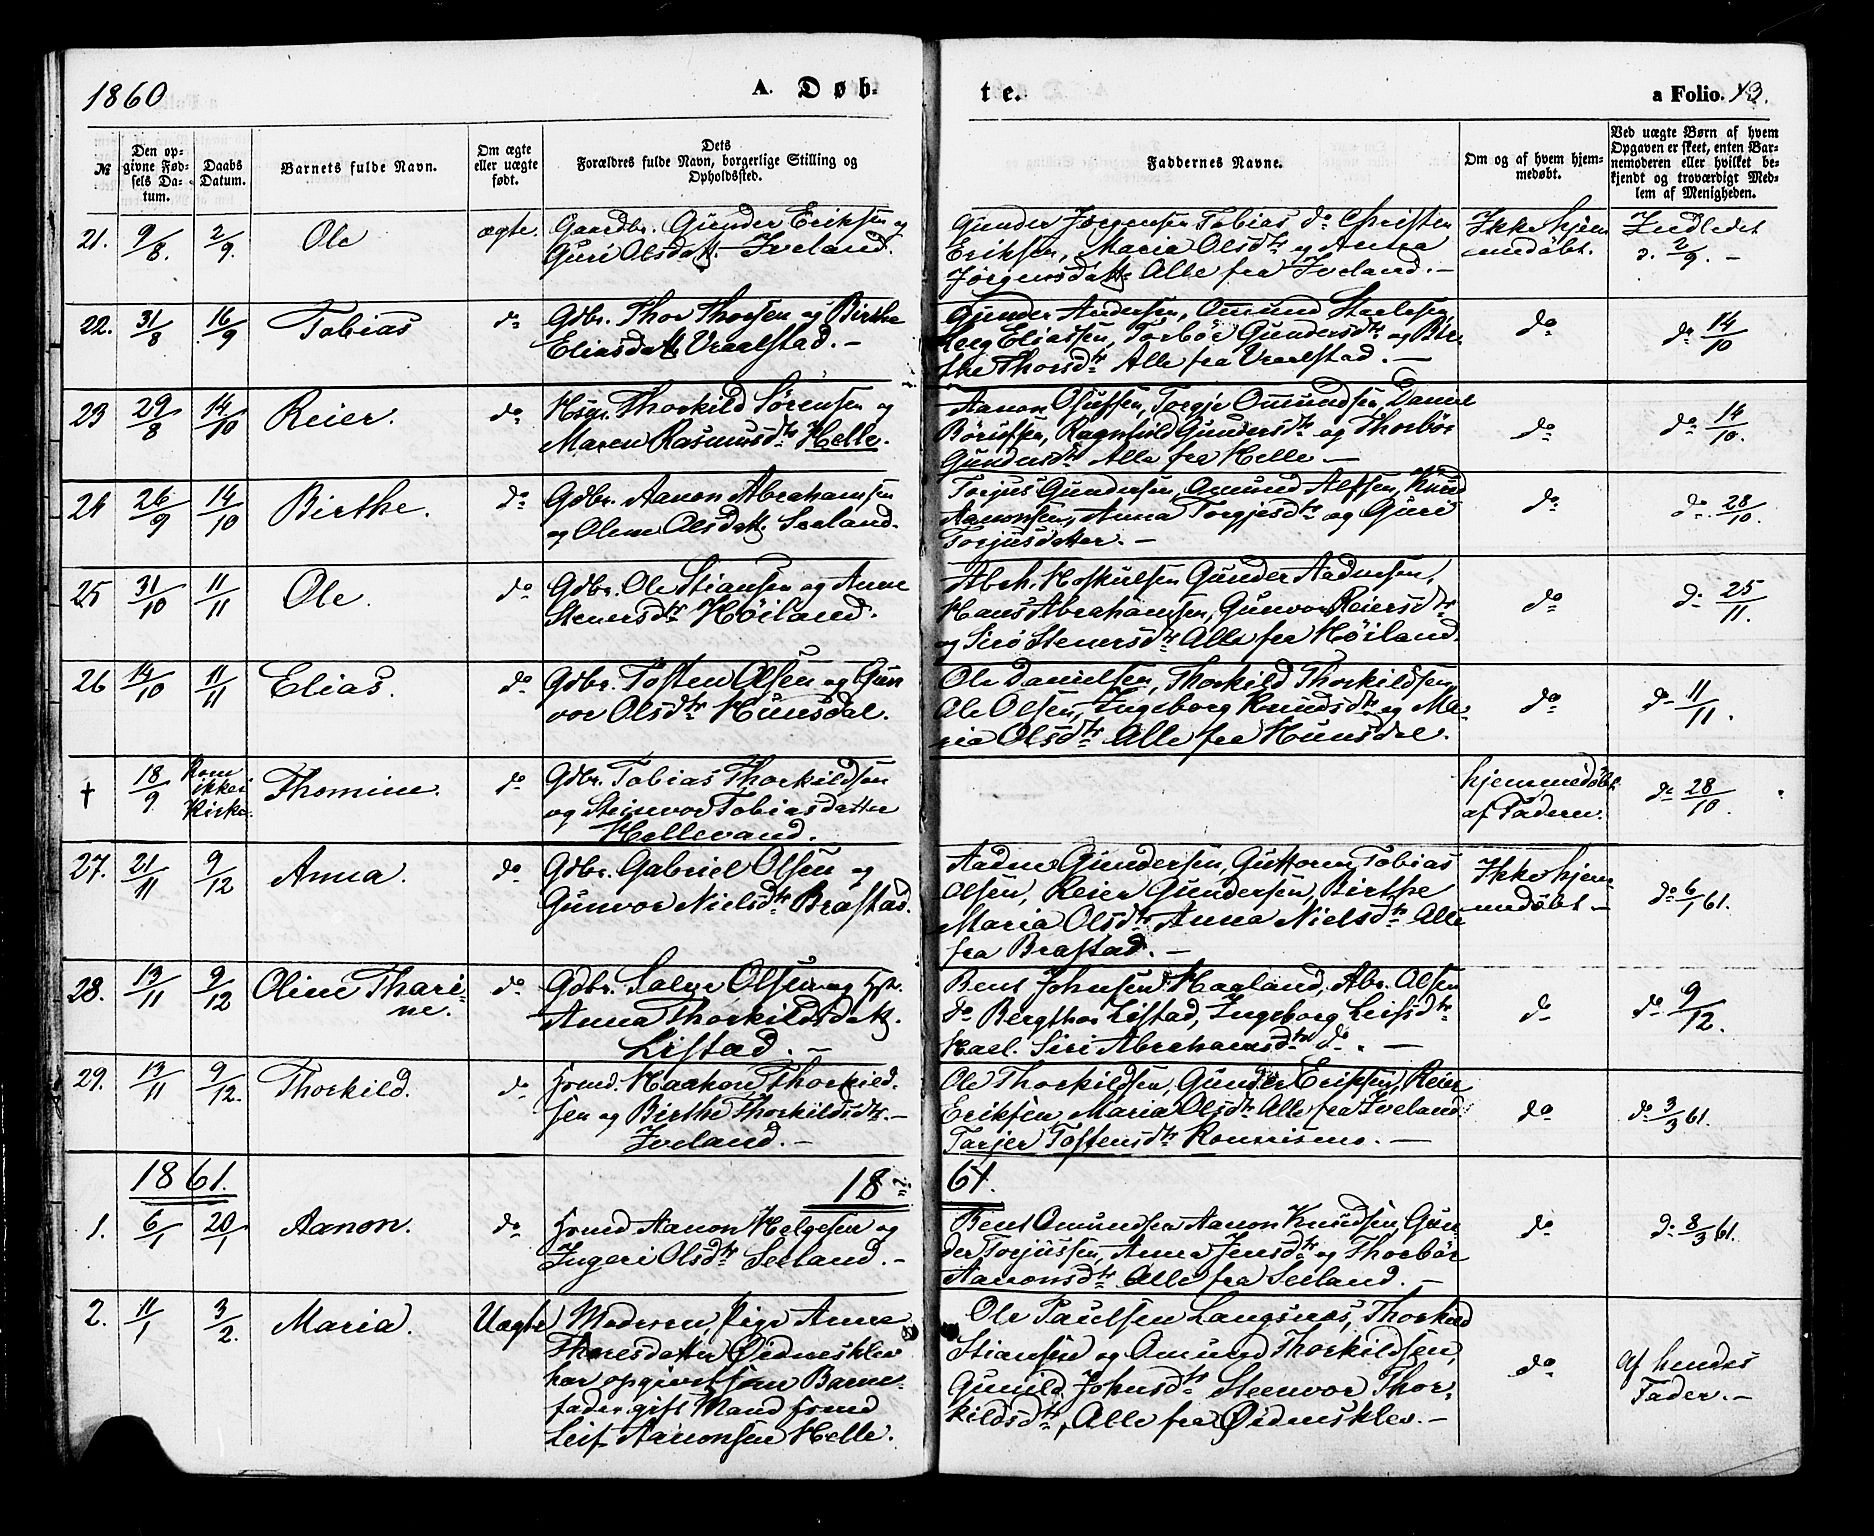 1860 A. Døb-
te. a Folio. 13.
№ Den opgivne Fødsels Datum. Daabs Datum. Barnets fulde Navn. Om ægte eller uægte født. Dets Forældres fulde Navn, borgerlige Stilling og Opholdssted.
Faddernes Navne. Om og af hvem hjemmedøbt. Ved uægte Børn af hvem Opgaven er skeet, enten Barnemoderen eller hvilket bekjendt og troværdigt Medlem af Menigheden.
21. 9/8. 2/9. Ole ægte. Gaardbr. Gunder Eriksen og
Guri Olsdatt. Iveland.
Gunder Jørgensen Tobias do Christen
Eriksen, Maria Olsdtr og Anna
Jørgensdatt. Alle fra Iveland. —
Ikke hjem
medøbt.
Indledet
d. 2/9. —
22. 31/8 16/9 Tobias do Gdbr. Thor Thorsen og Birthe
Eliasdatt. Vraalstad. —
Gunder Andersen, Omund
Eliassen, Torbør Gundersdtr og Bir-
the Thorsdtr Alle fra Vraalstad. —
do
do 14/10
23 29/8 14/10 Reier. do Hsm. Thorkild Sørensen og
Maren Rasmusdtr Helle.
Aanon Olufsen, Torgje Omundsen, Daniel
Ragnhild Gundersdtr og Thorbør
Gundersdtr Alle fra Helle —
do
do 14/10.
24 26/9 14/10 Birthe. do Gdbr. Aanon Abrahamsen
og Olene Olsdatt. Seeland.
Torjus Gundersen, Omund Alfsen, Knud
Aanonsen, Anna Torgjesdtr og Guri
Torjusdatter. —
do
do 28/10.
25 31/10 11/11 Ole. do Gdbr. Ole Stiansen og Anne
Stenersdtr Høiland.
Abrh. Hoskulsen Gunder Aadnesen,
Hans Abrahamsen, Gunvor Reiersdtr
og Siri Stenersdtr Alle fra Høiland.
do
do 25/11.
26 14/10 11/11 Elias. do Gdbr. Tosten Olsen og Gun
vor Olsdtr Hunsdal.
Ole Danielsen, Thorkild Thorkildsen
Ole Olsen, Ingeborg Knudsdtr og Ma-
ria Olsdtr Alle fra Hunsdal.
do
do 11/11.
† 18/9 Kom ikke i Kirke. Thomine. do Gdbr. Tobias Thorkildsen
og Steinvor Tobiasdatter
Hellevand.
hjemmedøbt
af Faderen.
do 28/10
27. 21/11 9/12 Anna. do Gdbr. Gabriel Olsen og
Gunvor Nielsdtr Brastad.
Aadne Gundersen, Guttorm Tobias
Olsen, Reier Gundersen, Birthe
Maria Olsdtr Anna Nielsdtr Alle
fra Brastad. —
Ikke hjem
medøbt —
do 6/1 61.
28. 13/11 9/12 Oline Thari-
ne. do Gdbr. Salve Olsen og Hst.
Anna Thorkildsdatt.
Listad. —
Bent Johnsen Haaland, Abr. Olsen
do Bergthor Listad, Ingeborg Leifsdtr
Siri Abrahamsdtr do. —
do
do 9/12.
29. 13/11 9/12. Thorkild. do Fsmd. Haakon Thorkild-
sen og Birthe Thorkildsdtr. —
Iveland. —
Ole Thorkildsen, Gunder Eriksen, Reier
Eriksen Maria Olsdtr Alle fra Iveland
Tarjer Tostensdtr —
do
do 3/3 61.
1861. 18
61.
1. 6/1 20/1 Aanon. do Fsmd Aanon Helgesen og
Ingeri Olsdtr Seeland. —
Bent Omundsen Aanon Knudsen, Gun-
der Torjussen, Anna Jensdtr og Thorbør
Aanonsdtr Alle fra Seeland. —
do
do 8/3 61.
2. 11/1 3/2. Maria. Uægte Moderen, Pige Anne
Tharesdatter Øidnesklev
har opgivet som Barne-
fader gift Mand Fsmd
Leif Aanonsen Helle.
Ole Paulsen Langsnes, Thorkild
Stiansen og Omund Thorkildsen,
Gunild Johnsdtr Steenvor Thor-
kildsdtr, Alle fra Øidnesklev. —
do
af hendes
Fader. —